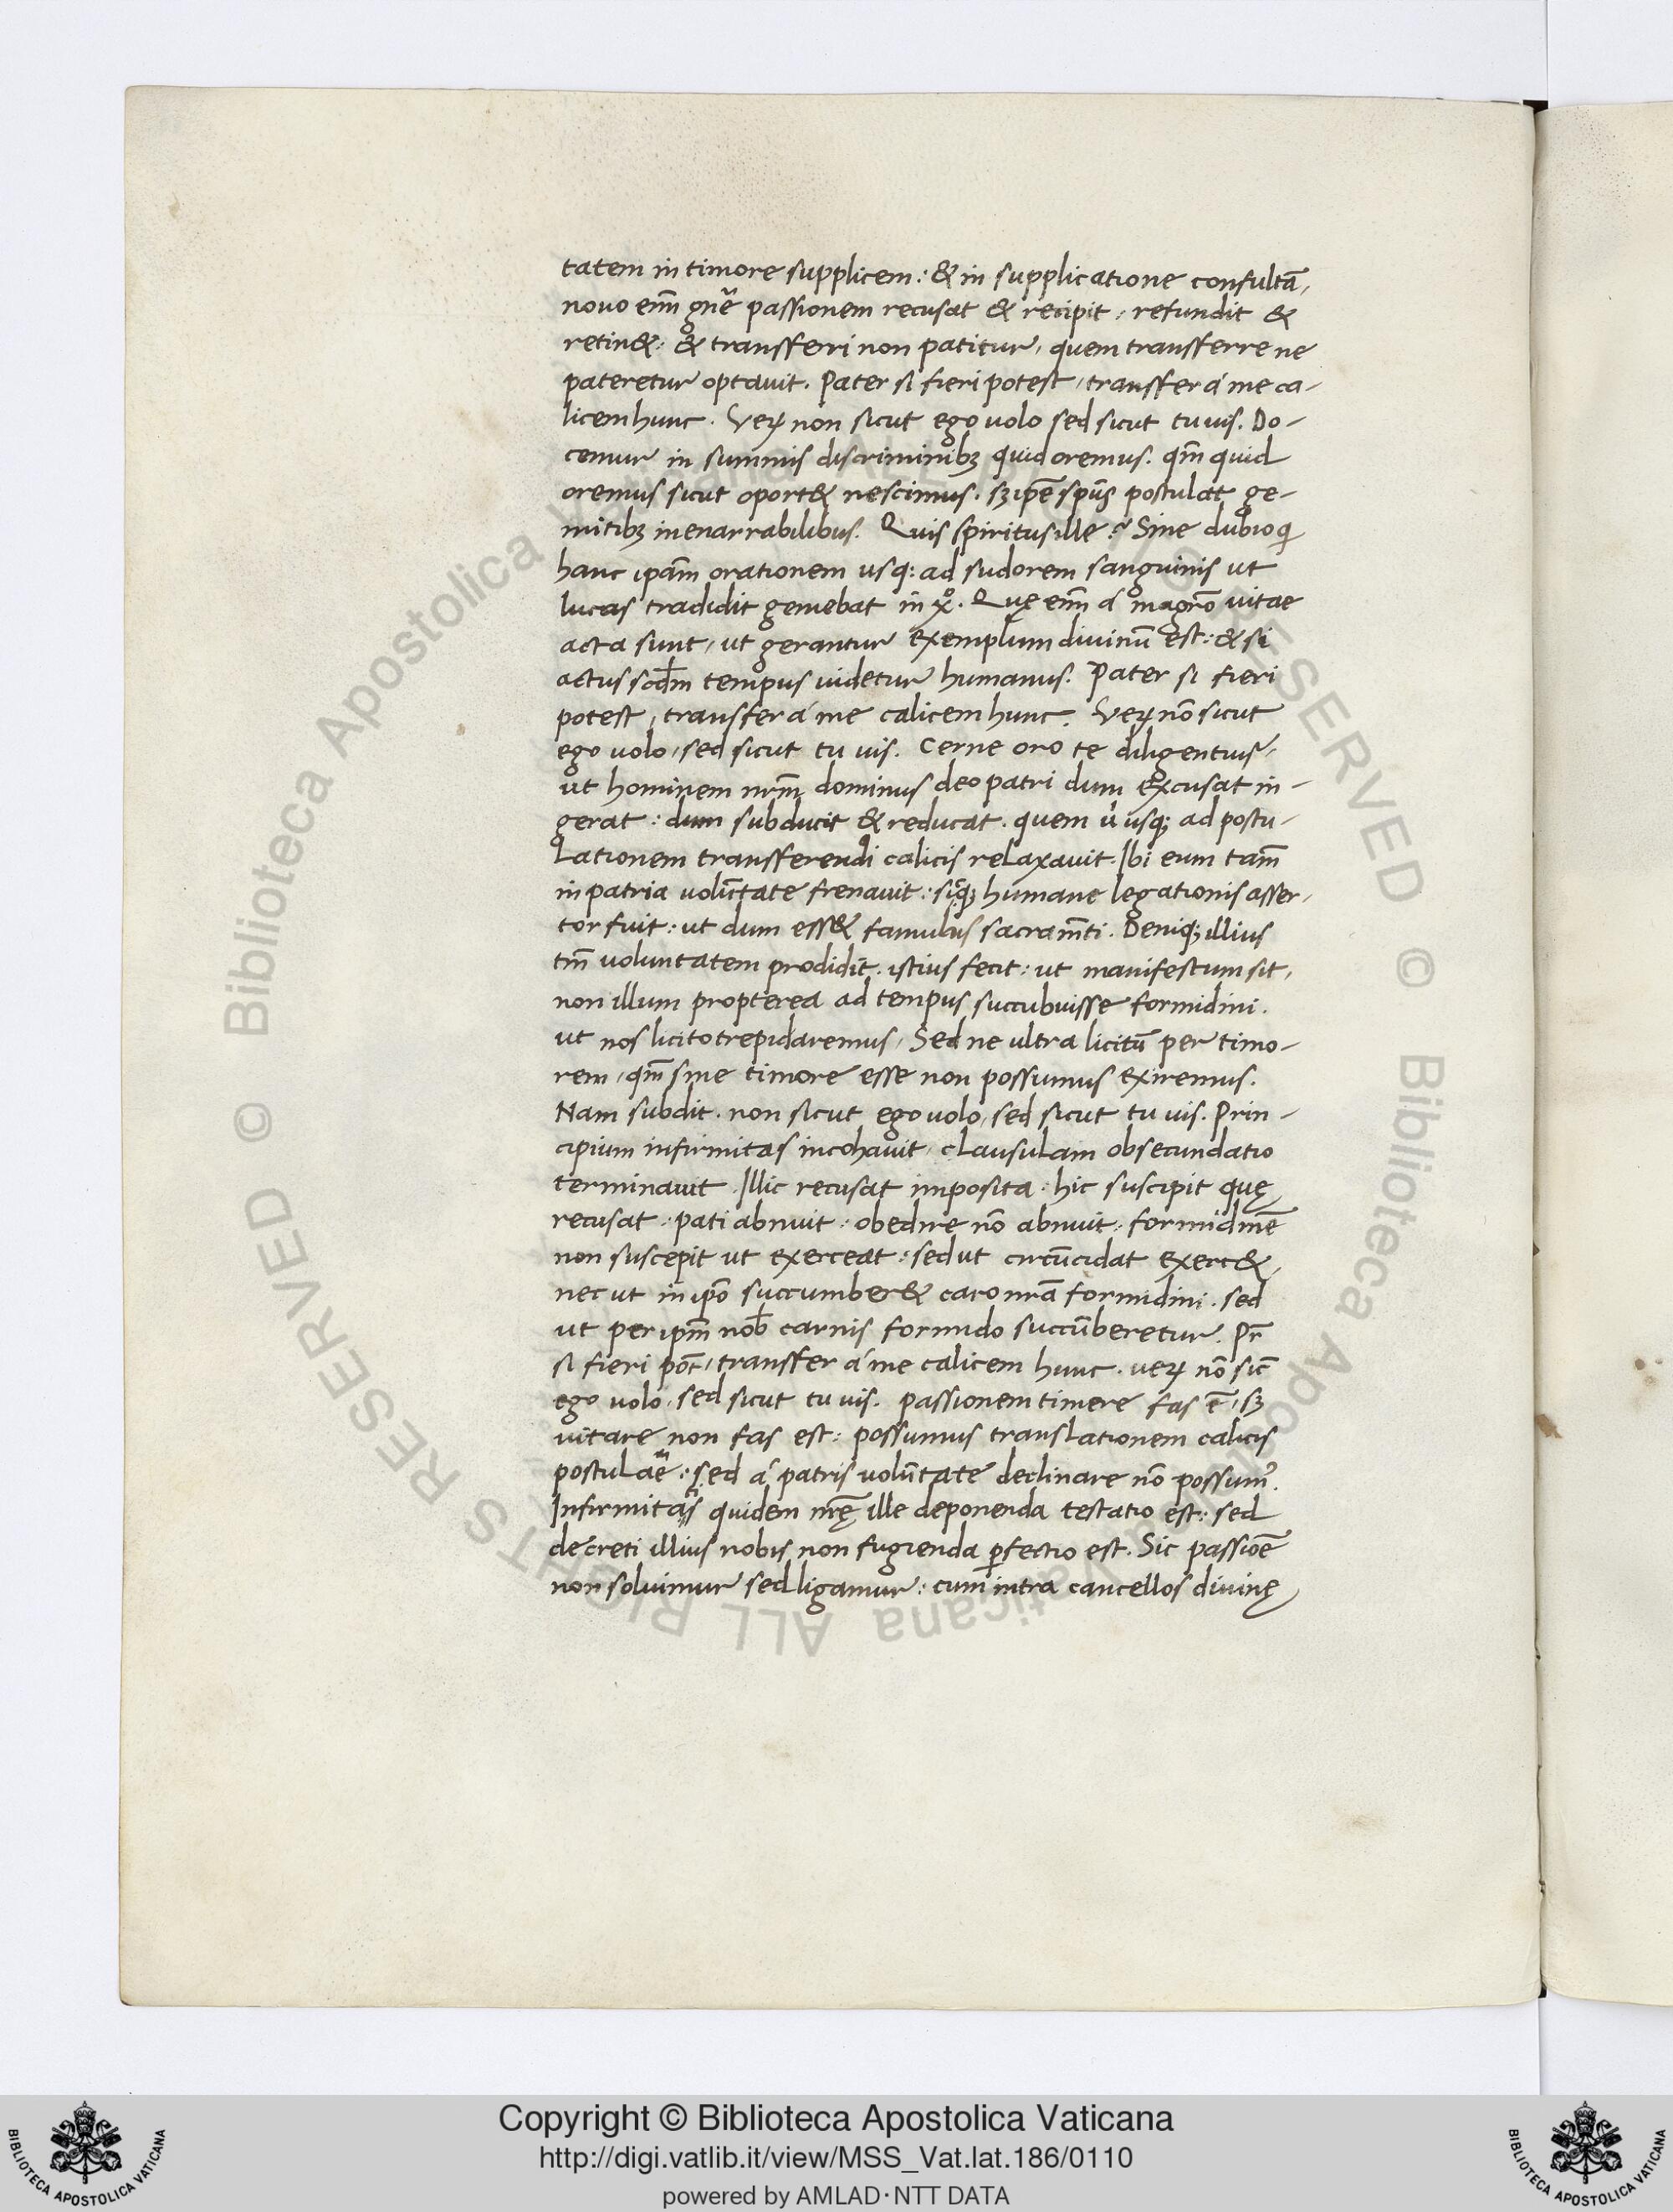 tatem in timore supplicem: & in supplicatione consultā,
nouo enī gn̄e passionem recusat & recipit, refundit &
retin&: & transferri non patitur, quem transferre ne
pateretur optauit. Pater si fieri potest, transfer á me ca-
licem hunc. Veꝝ non sicut ego volo sed sicut tu uis. Do-
cemur in summis discriminibꝫ quid oremus. qm̄ quid
oremus sicut oport& nescimus. sꝫ ip̄e sp̄us postulat ge-
mitibꝫ inenarrabilibus. Quis spiritus ille? Sine dubio qi
hanc ip̄am orationem usq: ad sudorem sanguinis ut
lucas tradidit gemebat in xo. Quę enī á magr̄o uitae
acta sunt, ut gerantur exemplum diuinū est: & si
actus scdm̄ tempus uidetur humanus. Pater si fieri
potest, transfer á me calicem hunc. Veꝝ nō sicut
ego uolo, sed sicut tu uis. Cerne oro te diligentius,
ut hominem nr̄m dominus deo patri dum excusat in-
gerat: dum subducit & reducat. quem u usqꝫ ad postu-
lationem transferendi calicis relaxauit. Ibi eum tam̄
in patria volūtate frenauit: siqꝫ humane legationis asser-
tor fuit: ut dum ess& famulus sacram̄ti. Deniqꝫ illius
tm̄ uoluntatem prodidit. istius fecit: ut manifestum sit,
non illum propterea ad tempus succubuisse formidini.
ut nos licito trepidaremus, Sed ne ultra licitū per timo-
rem, qm̄ sine timore esse non possumus exiremus.
Nam subdit. non sicut ego uolo, sed sicut tu uis. Prin-
cipium infirmitas incohauit, clausulam obsecundatio
terminauit. Illic recusat imposita: hic suscipit quę
recusat: pati abnuit: obedire nō abnuit: formidinē
non suscepit ut exerceat: sed ut circūcidat exerc&,
nec ut in ip̄o succumber& caro nr̄a formidini. sed
ut per ip̄m nob̄ carnis formido succūberetur. Pr̄
si fieri pōt, transfer á me calicem hunc. ueꝝ nō sic̄
ego uolo, sed sicut tu uis. passionem timere fas ē, sꝫ
uitare non fas est: possumus translationem calicis
postulare: sed á patris volūtate declinare nō possum⁹.
Infirmitatis quidem nr̄ę ille deponenda testatio est: sed
decreti illius nobis non fugienda ꝑfectio est. Sic passiōe
non soluimur sed ligamur: cum intra cancellos diuinę
Copyright © Biblioteca Apostolica Vaticana
http://digi.vatlib.it/view/MSS_Vat.lat.186/0110
powered by AMLAD·NTT DATA